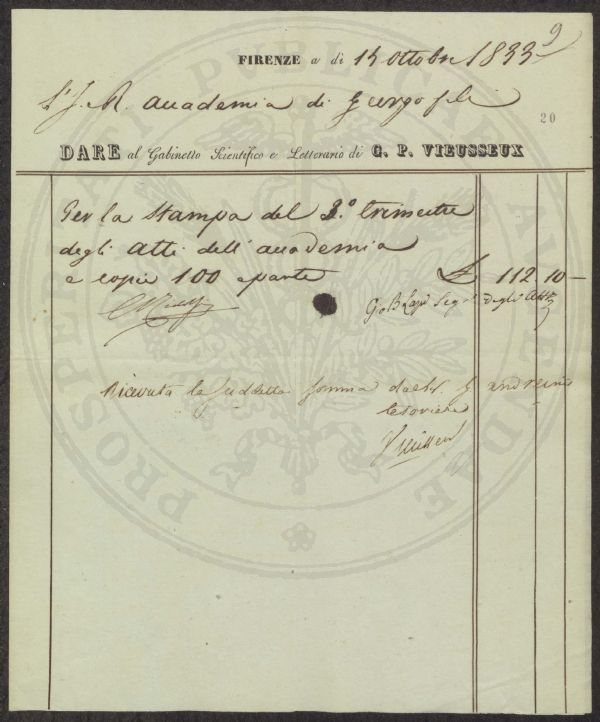 9
FIRENZE a di 14 Ottobre 1833
L'I. R. Accademia di Georgofili
20
DARE al Gabinetto Scientifico e Letterario di G. P. VIEUSSEUX
Per la Stampa del 2.º trimestre
degli Atti dell'Accademia
e copie 100 aparte £ 112.10 –
G. B. Lapi Seg. degli Atti
Ricevuta la suddetta somma dal Sr. andreini
tesoriere
Vieusseux
PROSPERITATI PUBLICAE AUGENDAE